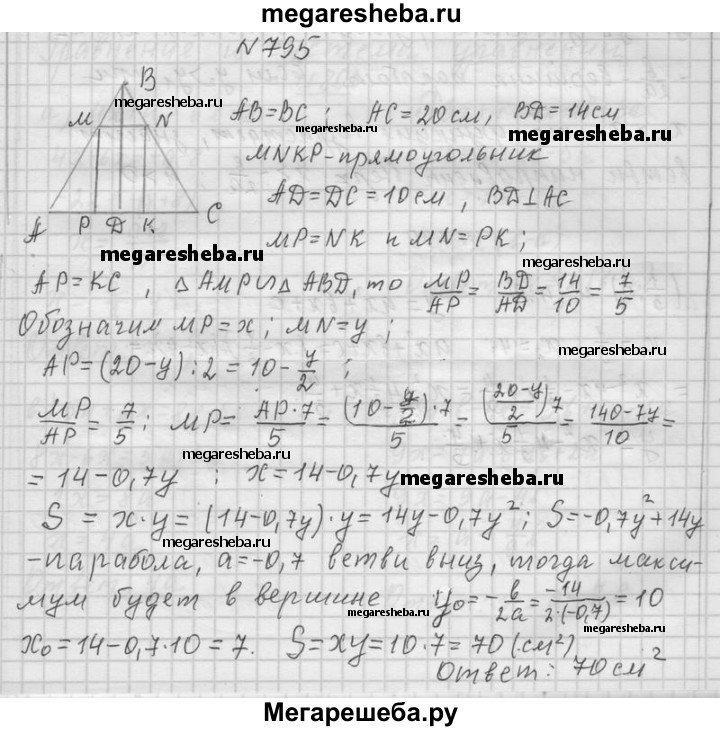 megaresheba.ru
N795
B
megaresheba.ru
M N
megaresheba.ru
A P D K C
megaresheba.ru
AB=BC; AC=20см, BD=14см
megaresheba.ru
megaresheba.ru
MNKP-прямоугольник
AD=DC=10см, BD⊥AC
megaresheba.ru
MP=NK и MN=PK;
megaresheba.ru
AP=KC, △AMP∽△ABD, то MP/AP = BD/AD = 14/10 = 7/5
Обозначим MP=x; MN=y;
megaresheba.ru
megaresheba.ru
AP=(20-y):2=10-y/2;
MP/AP = 7/5; MP = AP·7/5 = (10-y/2)·7/5 = ((20-y)/2)7/5 = 140-7y/10 =
megaresheba.ru
megaresheba.ru
= 14-0,7y; x=14-0,7y
megaresheba.ru
S = x·y = (14-0,7y)·y = 14y-0,7y²; S=-0,7y²+14y
megaresheba.ru
-парабола, a=-0,7 ветви вниз, тогда макси-
мум будет в вершине y₀=-b/2a = -14/2·(-0,7) = 10
megaresheba.ru
megaresheba.ru
x₀=14-0,7·10=7. S=xy=10·7=70(см²)
megaresheba.ru
Ответ: 70см²
Мегарешеба.ру